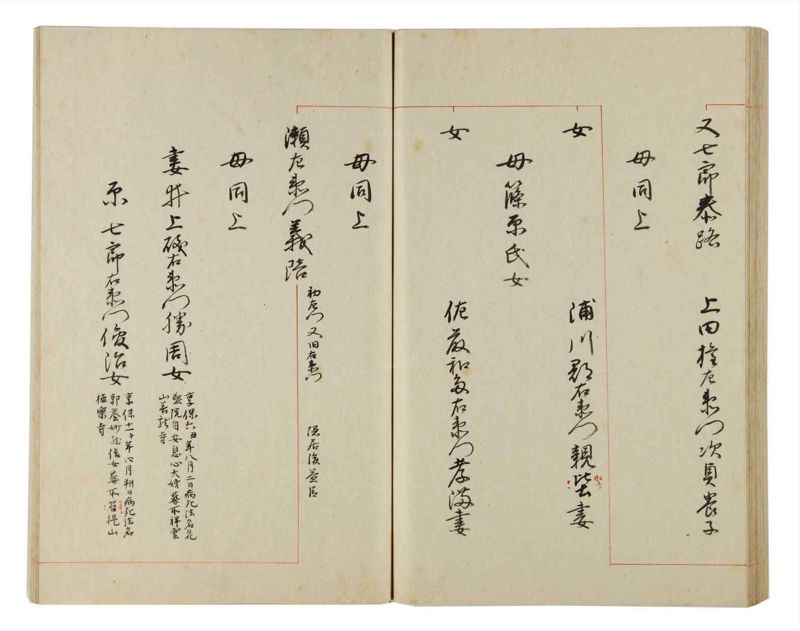 又七郎泰路　上田権左衛門次員養子
母同上
女　浦川郡右衛門親　妻
母篠原氏女
女　佐藤和多右衛門孝満妻
母同上
瀬左衛門義陪　初左門　又田右衛門　隠居後　
母同上
妻井上磯右衛門勝周女　享保六丑年八月二日病死法名花
院自安息心大姉墓所祥雲
山　寺
原七郎右衛門俊治女　享保十一午年七月朔日病死法名
妙　信女墓所菩提山
極楽寺